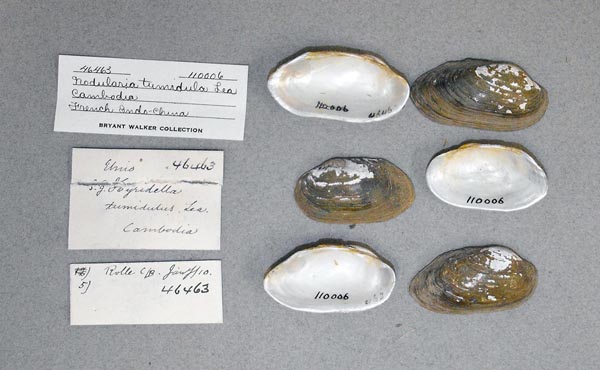 46463 110006
Nodularia tumidula Lea
Cambodia
French Indo-China
BRYANT WALKER COLLECTION
Unio 46463
s.g. Hyridella
tumidulus Lea.
Cambodia
Rolle
5) 46463
110006
110006
110006